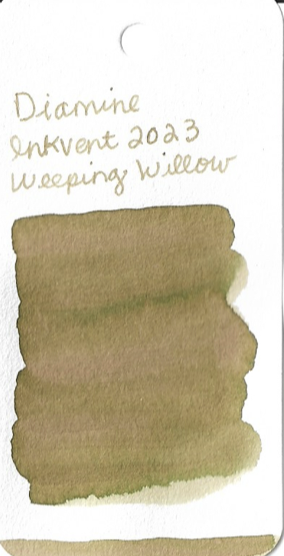 Diamine
Inkvent 2023
Weeping Willow